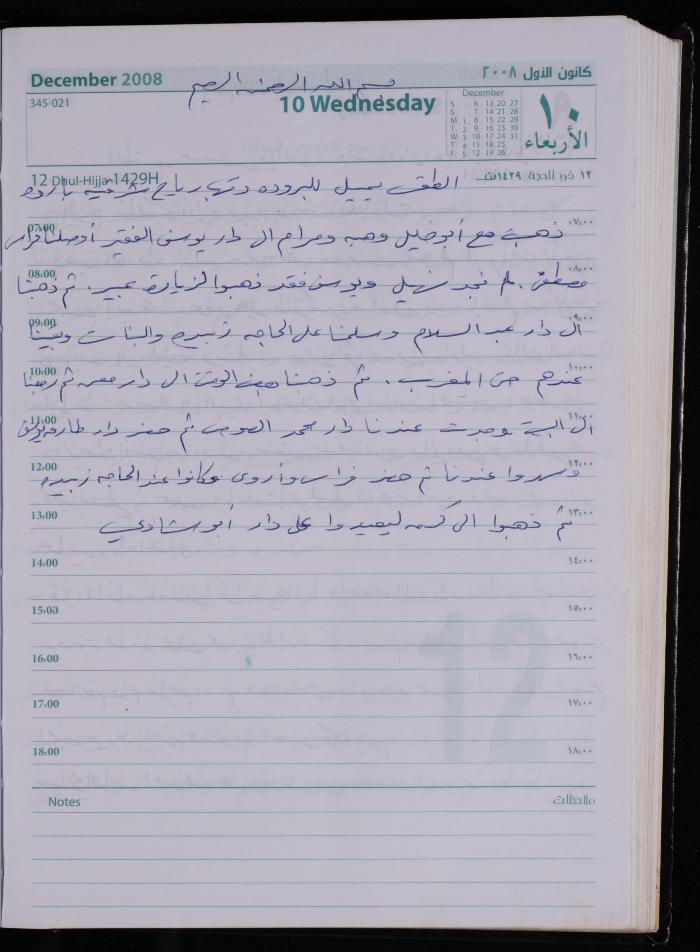 December 2008
كانون الأول ٢٠٠٨
بسم الله الرحمن الرحيم
345-021
10 Wednesday
December
S 6 13 20 27
S 7 14 21 28
M 1 8 15 22 29
T 2 9 16 23 30
W 3 10 17 24 31
T 4 11 18 25
F 5 12 19 26
١٠
الأربعاء
12 Dhul-Hijja 1429H
١٢ ذو الحجة ١٤٢٩هـ
الطقس يميل للبروده وتهب رياح شرقيه بارده
07:00
٠٧:٠٠
ذهبت مع أبو خليل وهبه ومرام الى دار يوسف الفقير أوصلنا فراس
08:00
٠٨:٠٠
مصطفى . لم نجد نهيل ويوسف فقد ذهبوا لزيارة عبير . ثم ذهبنا
09:00
٠٩:٠٠
الى دار عبد السلام وسلمنا على الحاجه زبيده والبنات وبقينا
10:00
١٠:٠٠
عندهم حتى المغرب . ثم ذهبنا بعض الوقت الى دار ثم رجعنا
11:00
١١:٠٠
الى البيت وجدت عندنا دار محمد ثم حضر دار طارق
12:00
١٢:٠٠
وسهروا عندنا ثم حضر فراس وأروى وكانوا عند الحاجه زبيده
13:00
١٣:٠٠
ثم ذهبوا الى ليعيدوا على دار أبو شادي
14:00
١٤:٠٠
15:00
١٥:٠٠
16:00
١٦:٠٠
17:00
١٧:٠٠
18:00
١٨:٠٠
12
Notes
ملاحظات